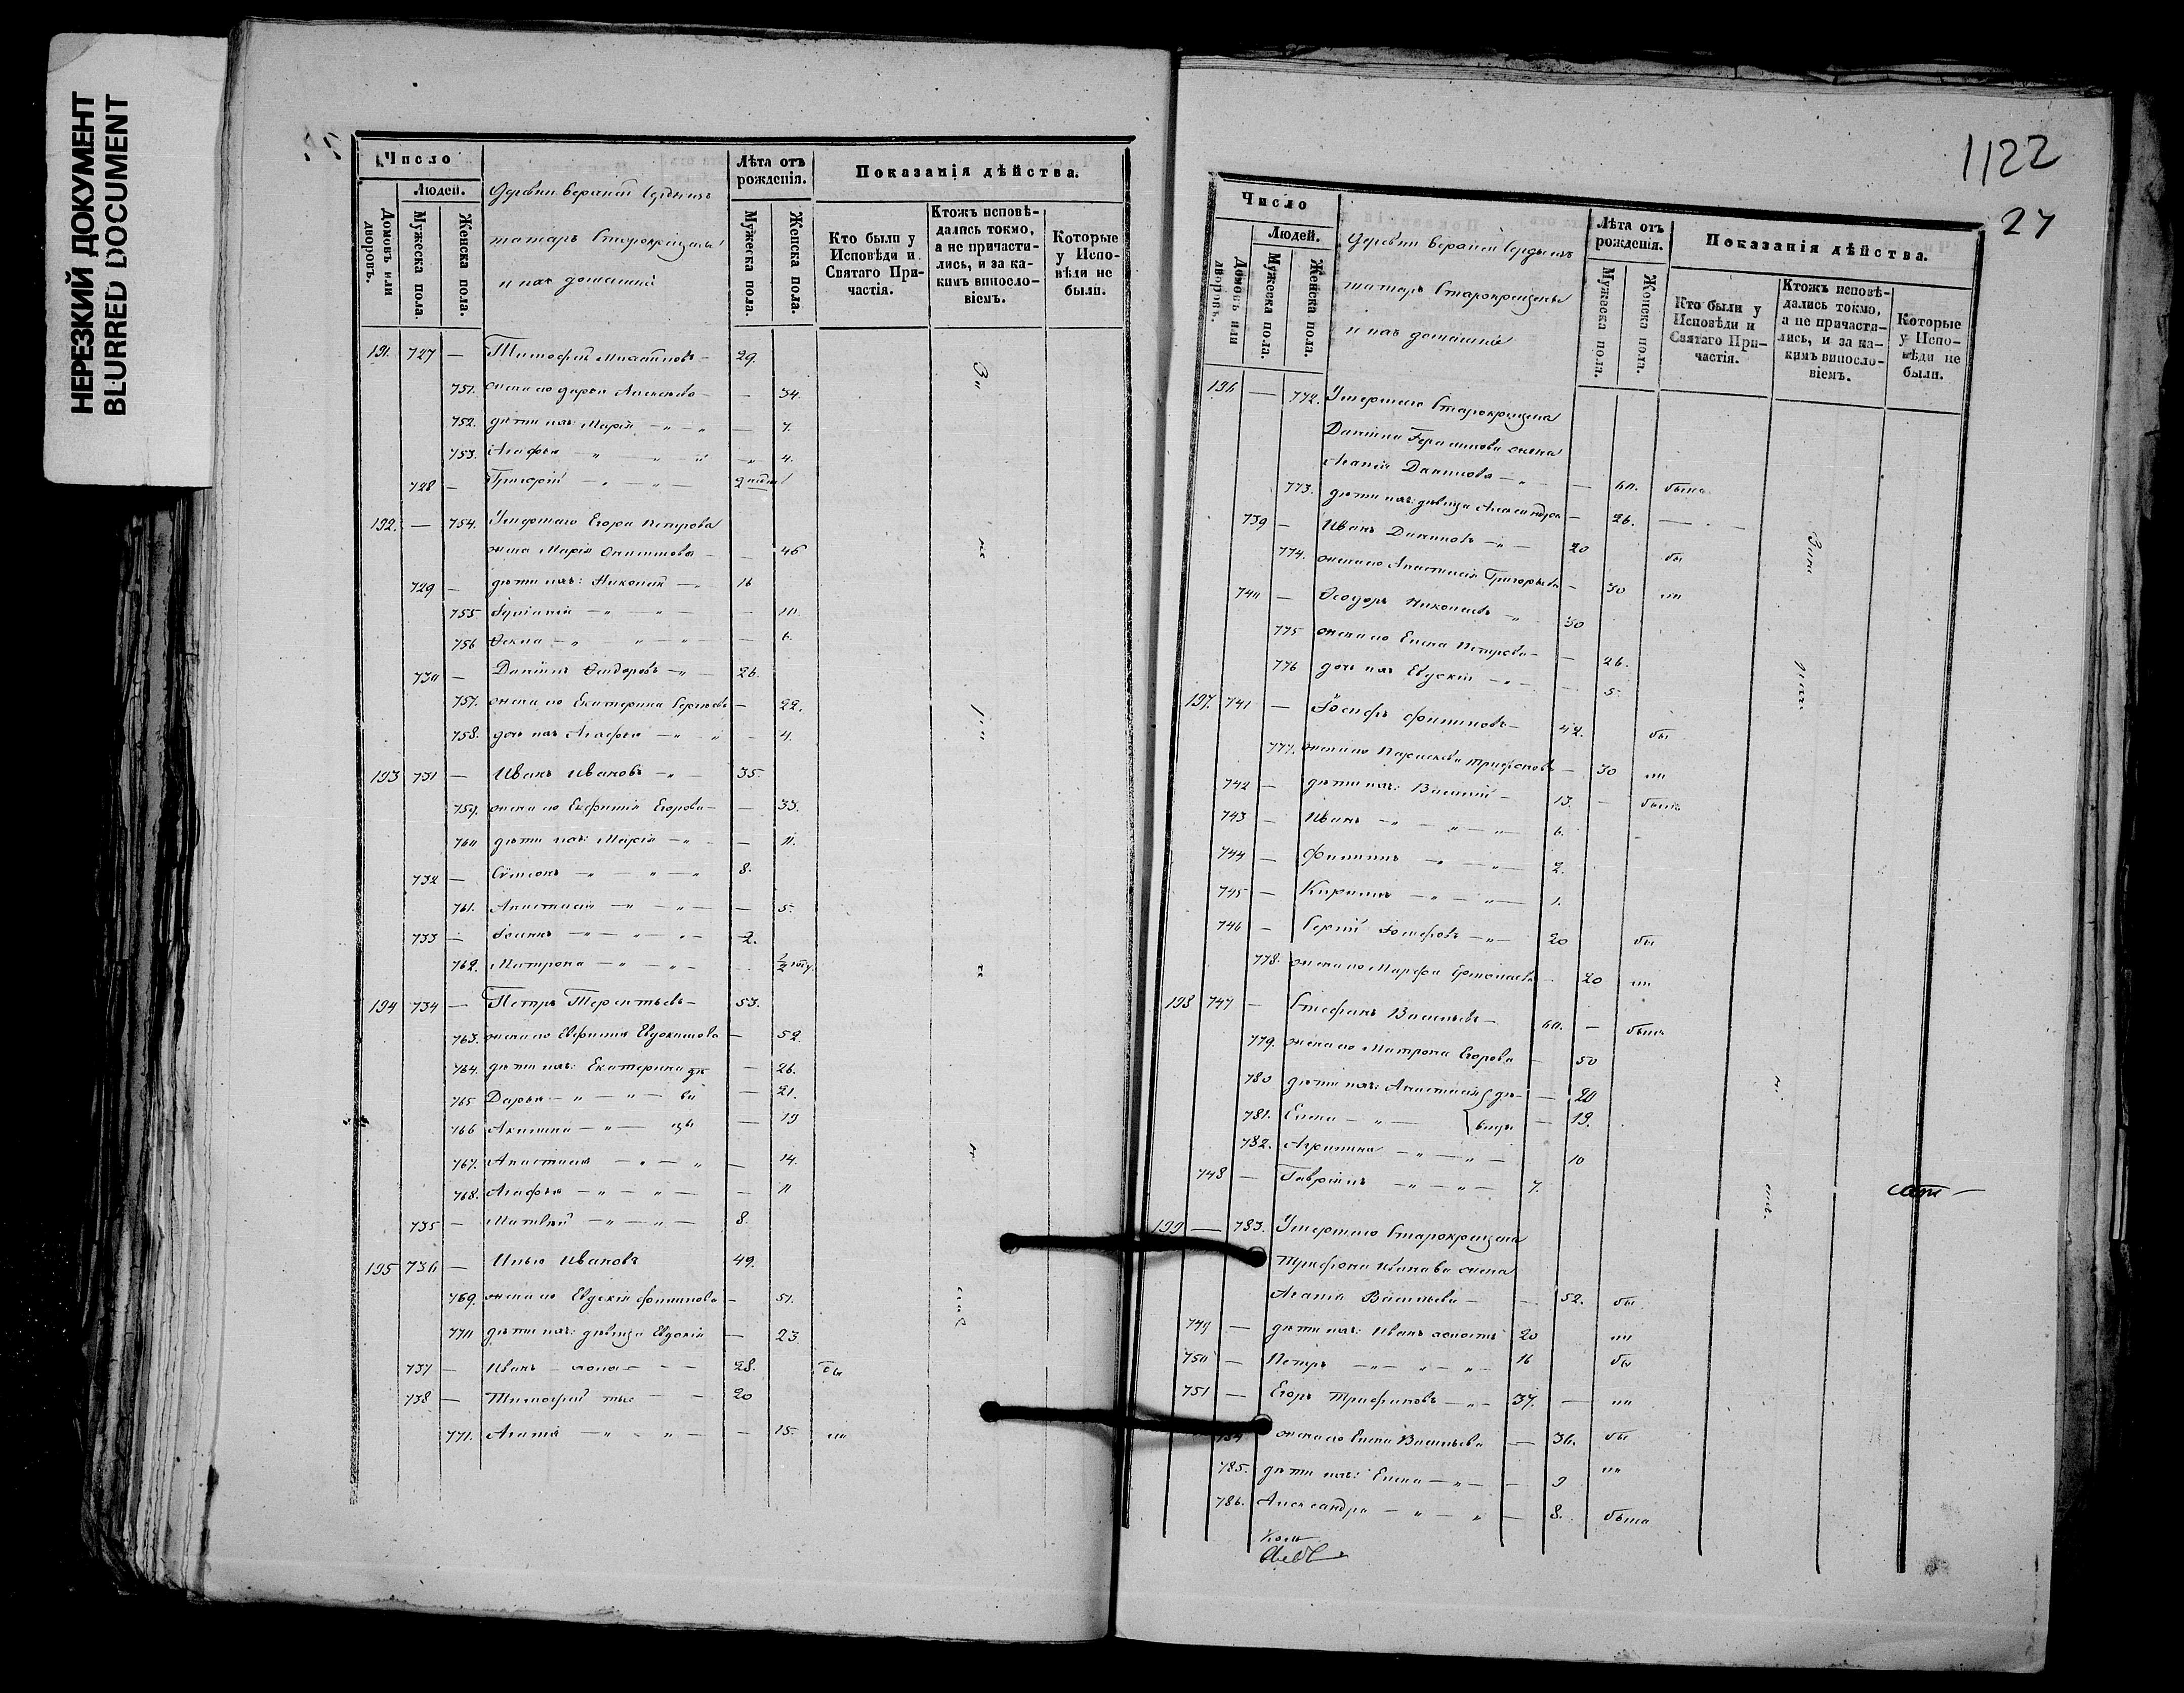 НЕРЕЗКИЙ ДОКУМЕНТ
BLURRED DOCUMENT
Число
Людей.
Домовъ или дворовъ.
Мужеска пола.
Женска пола.
татаръ Старокрещены
и ихъ домашніе
Лѣта отъ рожденія.
Мужеска пола.
Женска пола.
Показанія дѣйства.
Кто были у Исповѣди и Святаго Причастія.
Ктожъ исповѣдались токмо, а не причастились, и за какимъ винословіемъ.
Которые у Исповѣди не были.
191. 727 — Тимофей Михайловъ — 29.
751. жена его Дарья — 34.
752. дѣти ихъ: Марія — „ — „ — 7.
753. Агафья — „ — „ — „ 4.
728 — Григорій — „ — „ —
192. — 754. Умершаго Егора Петрова
жена Марія — — 46
729 — дѣти ихъ: Николай — „ 16
755 Іуліанія — „ — „ — — 10.
756 Ѳекла — „ — „ — „ — 6.
730 — Даніилъ Ѳедоровъ — „ — 26.
757. жена его Екатерина Сергѣева — 22.
758. дочь ихъ Агафья — „ „ — 4.
193 731 — Иванъ Ивановъ — „ — 35.
759. жена его Егорова — — 33.
760 дѣти ихъ: Марія — „ — — 11.
732 — Сѵмеонъ — „ — „ — „ 8.
761. Анастасія — „ — „ — — 5.
733 — Іоаннъ — „ — „ — „ — 2.
762. Матрона — „ — „ — ½ году
194 734 — Петръ Терентьевъ — 53.
763. жена его Евфимія Евдокимова — 52.
764. дѣти ихъ: Екатерина дѣ — 26.
765 Дарья — „ — „ — ви — 21.
766 Акилина — „ — цы — 19
767. Анастасія — „ — „ — 14.
768. Агафья — „ — „ — — 11
735 — Матвѣй — „ — „ — 8.
195 736 — Илья Ивановъ 49.
769. жена его Евдокія Филиппова — 51.
770 дѣти ихъ: дѣвица Евдокія — 23.
737 — Иванъ — холо — — 28. бы
738 — Тимофей стые — — 20
771. Агафія — „ — „ — — 15. ли
1122
27
Число
Людей.
Домовъ или дворовъ.
Мужеска пола.
Женска пола.
татаръ Старокрещены
и ихъ домашніе
Лѣта отъ рожденія.
Мужеска пола.
Женска пола.
Показанія дѣйства.
Кто были у Исповѣди и Святаго Причастія.
Ктожъ исповѣдались токмо, а не причастились, и за какимъ винословіемъ.
Которые у Исповѣди не были.
196 — 772. Умершаго Старокрещена
Даніила Герасимова жена
Данилова — „ — 60. была
773. дѣти ихъ: дѣвица Александра — 26. —
739 — Иванъ Даниловъ — „ — 20 бы
774. жена его Анастасія Григорьева — 30 ли
740 — Ѳеодоръ Николаевъ „ 30
775 жена его Елена Петрова — — 26.
776 дочь ихъ Евдокія — „ — — 5.
197. 741 — Іосифъ Филиповъ — 42. бы
777. жена его Параскева Трифонова — 30 ли
742 — дѣти ихъ: Василій — 13. — была
743 — Иванъ — „ — „ — „ — 6.
744 — Филиппъ — „ — „ — 2.
745 — Кириллъ — „ — „ — 1.
746 — Сергій Іосифовъ — „ — 20 бы
778. жена его Марфа Ермолаева — 20 ли
198 747 — Стефанъ Васильевъ — 60. — былъ
779. жена его Матрона Егорова — 50
780 дѣти ихъ: Анастасія дѣ — — 20
781. Елена — „ — вицы — 19.
782. Агрипина — „ — „ — 10
748 — Гавріилъ — „ — „ — 7.
199 — 783. Умершаго Старокрещена
Трифона Иванова жена
Агафія Васильева — — 52. бы
749 — дѣти ихъ: Иванъ холостъ 20 ли
750 — Петръ — „ — „ — „ — 16 бы
751 — Егоръ Трифоновъ — „ — 37. — ли
784 жена его Елена Васильева — 36. бы
785. дѣти ихъ: Елена — „ — — 9 ли
786. Александра — „ — „ — 8. была